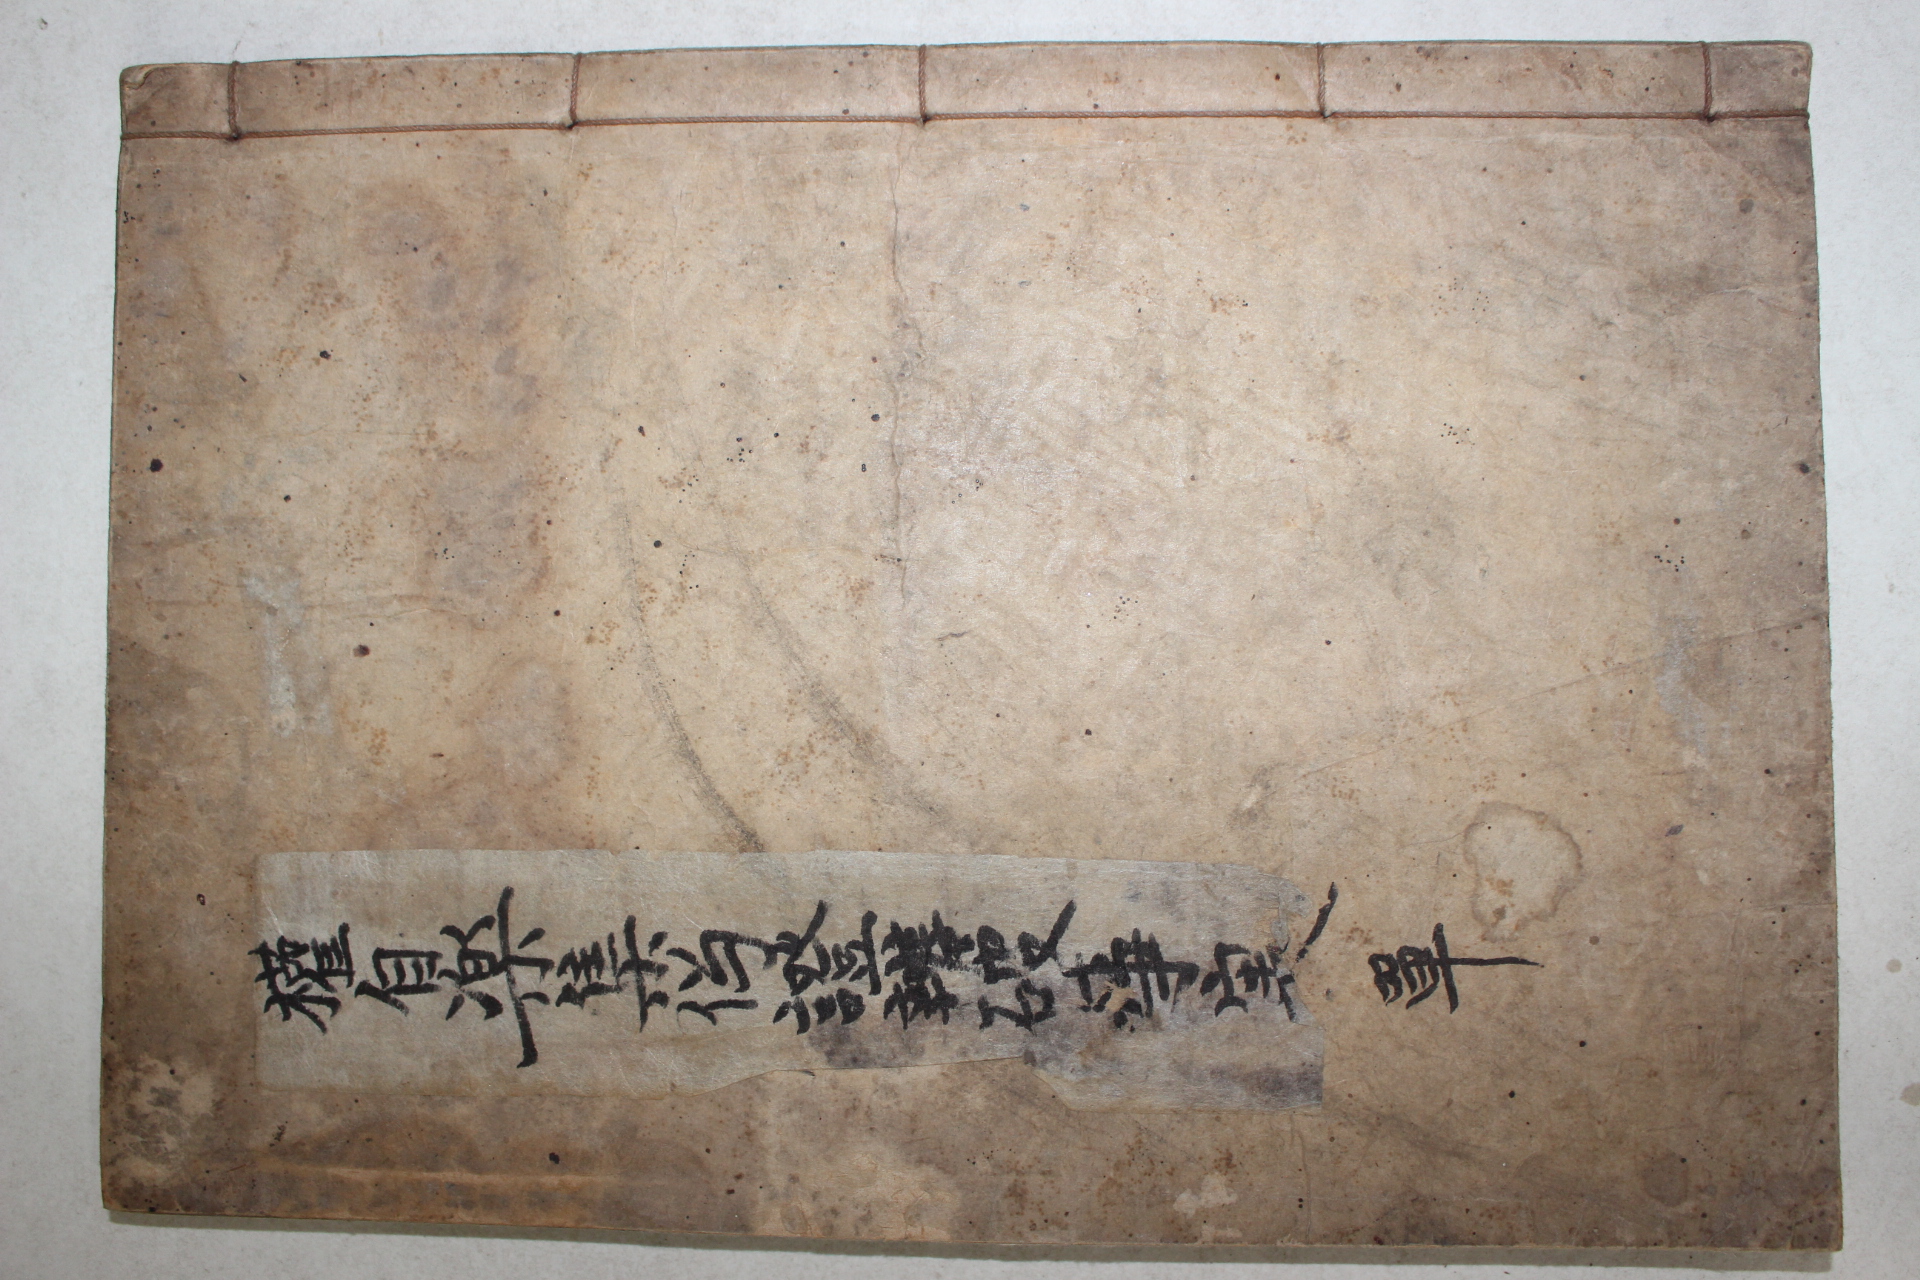 權自楽集僞證辨破事寔 單